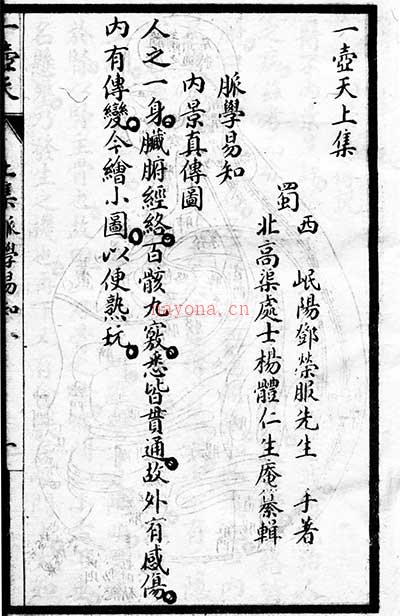 一壺天上集
蜀
西 岷陽鄧榮服先生 手著
北高渠處士楊體仁生庵纂輯
脈學易知
內景真傳圖
人之一身臟腑經絡百骸九竅悉皆貫通故外有感傷
內有傳變今繪小圖以便熟玩
一壺天
上集脈學易知
一
nayona.cn